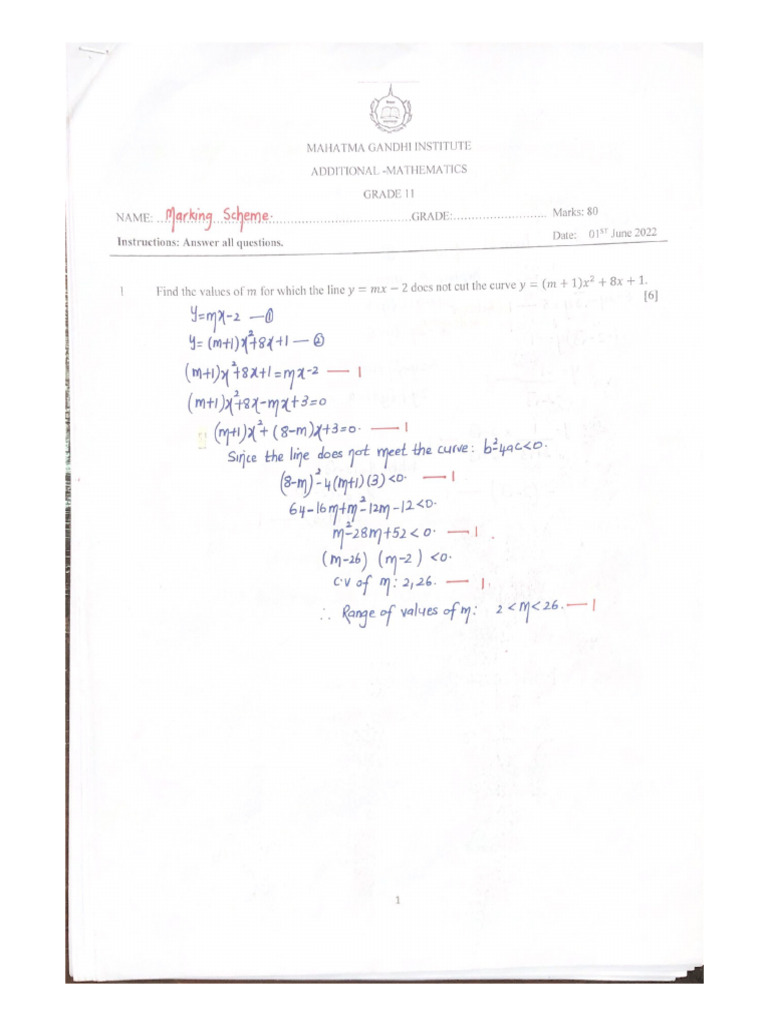 MAHATMA GANDHI INSTITUTE
ADDITIONAL -MATHEMATICS
GRADE 11
NAME: ...Marking Scheme.............................GRADE:......................... Marks: 80
Instructions: Answer all questions. Date: 01ST June 2022
1 Find the values of m for which the line y = mx − 2 does not cut the curve y = (m + 1)x² + 8x + 1.
[6]
y=mx-2 — ①
y= (m+1)x²+8x+1 — ②
(m+1)x²+8x+1=mx-2 — 1
(m+1)x²+8x-mx+3=0
(m+1)x²+(8-m)x+3=0. — 1
Since the line does not meet the curve: b²-4ac<0.
(8-m)²-4(m+1)(3)<0. — 1
64-16m+m²-12m-12<0.
m²-28m+52<0. — 1
(m-26) (m-2) <0.
C.V of m: 2,26. — 1.
∴ Range of values of m: 2<m<26. — 1
1